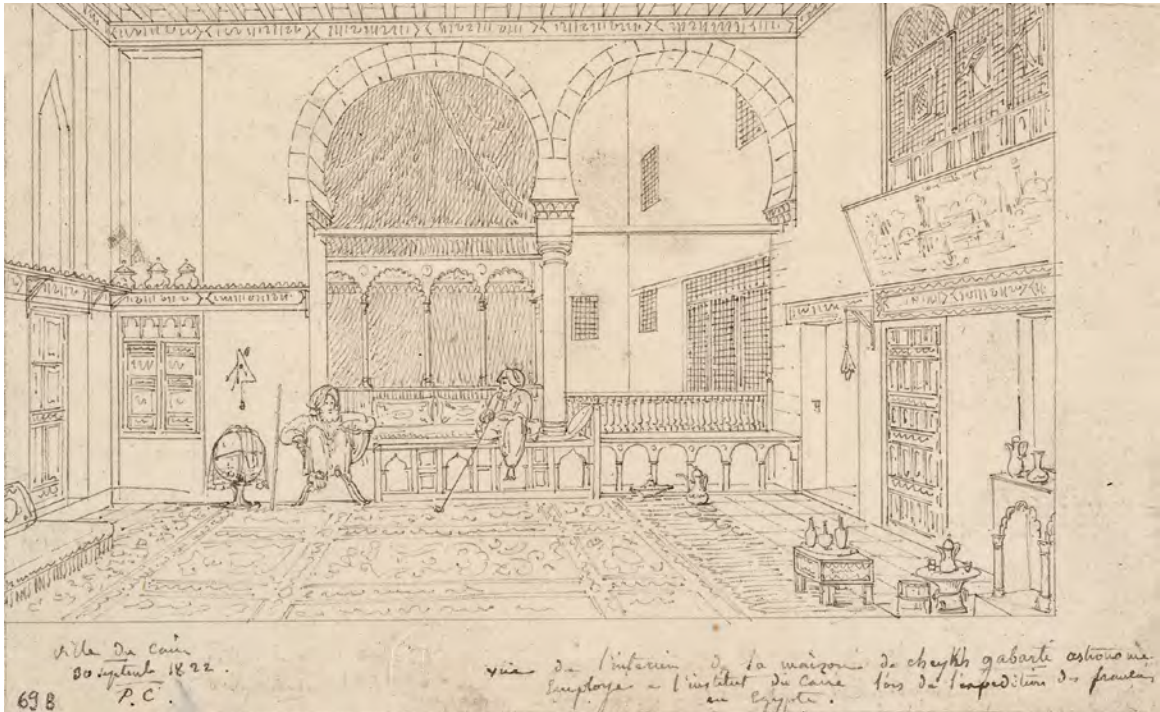 ville du Caire
30 septemb 1822.
P.C.
69 B
vue de l'interieur de la maison de cheykh gabarti astronome
Employe a l'institut du Caire lors de l'expedition des français
en Egypte.